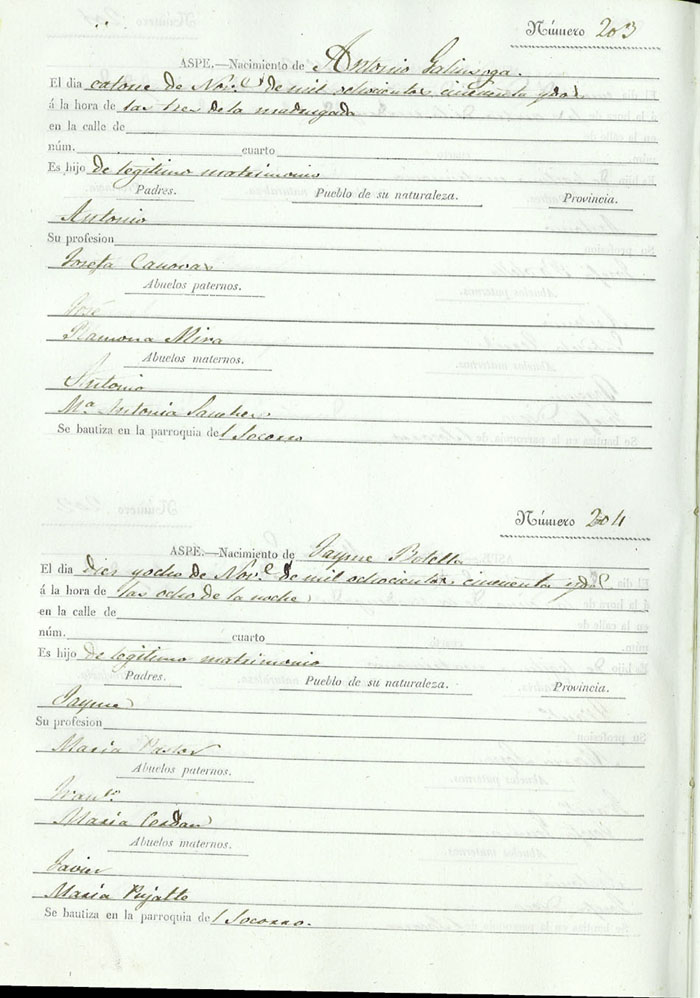 Número 203
ASPE.—Nacimiento de Antonio Galinsoga.
El dia catorce de Nov.e de mil ochocientos cincuenta y dos
á la hora de las tres de la madrugada
en la calle de
núm. cuarto
Es hijo de legitimo matrimonio
Padres. Pueblo de su naturaleza. Provincia.
Antonio
Su profesion
Josefa Canovas
Abuelos paternos.
José
Ramona Mira
Abuelos maternos.
Antonio
Ma. Antonia Sanchez.
Se bautiza en la parroquia del Socorro
Número 204
ASPE.—Nacimiento de Jayme Botella
El dia diez y ocho de Nov.e de mil ochocientos cincuenta y dos
á la hora de las ocho de la noche
en la calle de
núm. cuarto
Es hijo de legitimo matrimonio
Padres. Pueblo de su naturaleza. Provincia.
Jayme
Su profesion
Maria Pastor
Abuelos paternos.
Fran.co
Maria Cerdan
Abuelos maternos.
Javier
Maria Pujalte
Se bautiza en la parroquia del Socorro.